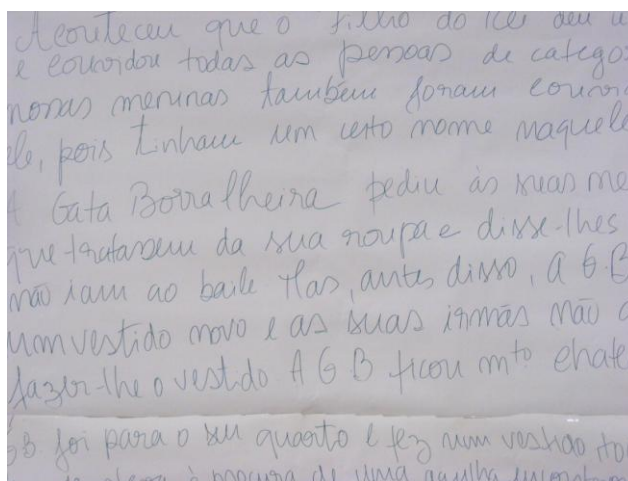 Aconteceu que o filho do Rei deu u
e convidou todas as pessoas de catego
nossas meninas também foram convi
ele, pois tinham um certo nome naquele
A Gata Borralheira pediu às suas me
que tratassem da sua roupa e disse-lhes
não iam ao baile Mas, antes disso, a G.B
um vestido novo e as suas irmãs não
fazer-lhe o vestido A G B ficou mto chate
GB foi para o seu quarto e fez num vestido to
à procura de uma agulha